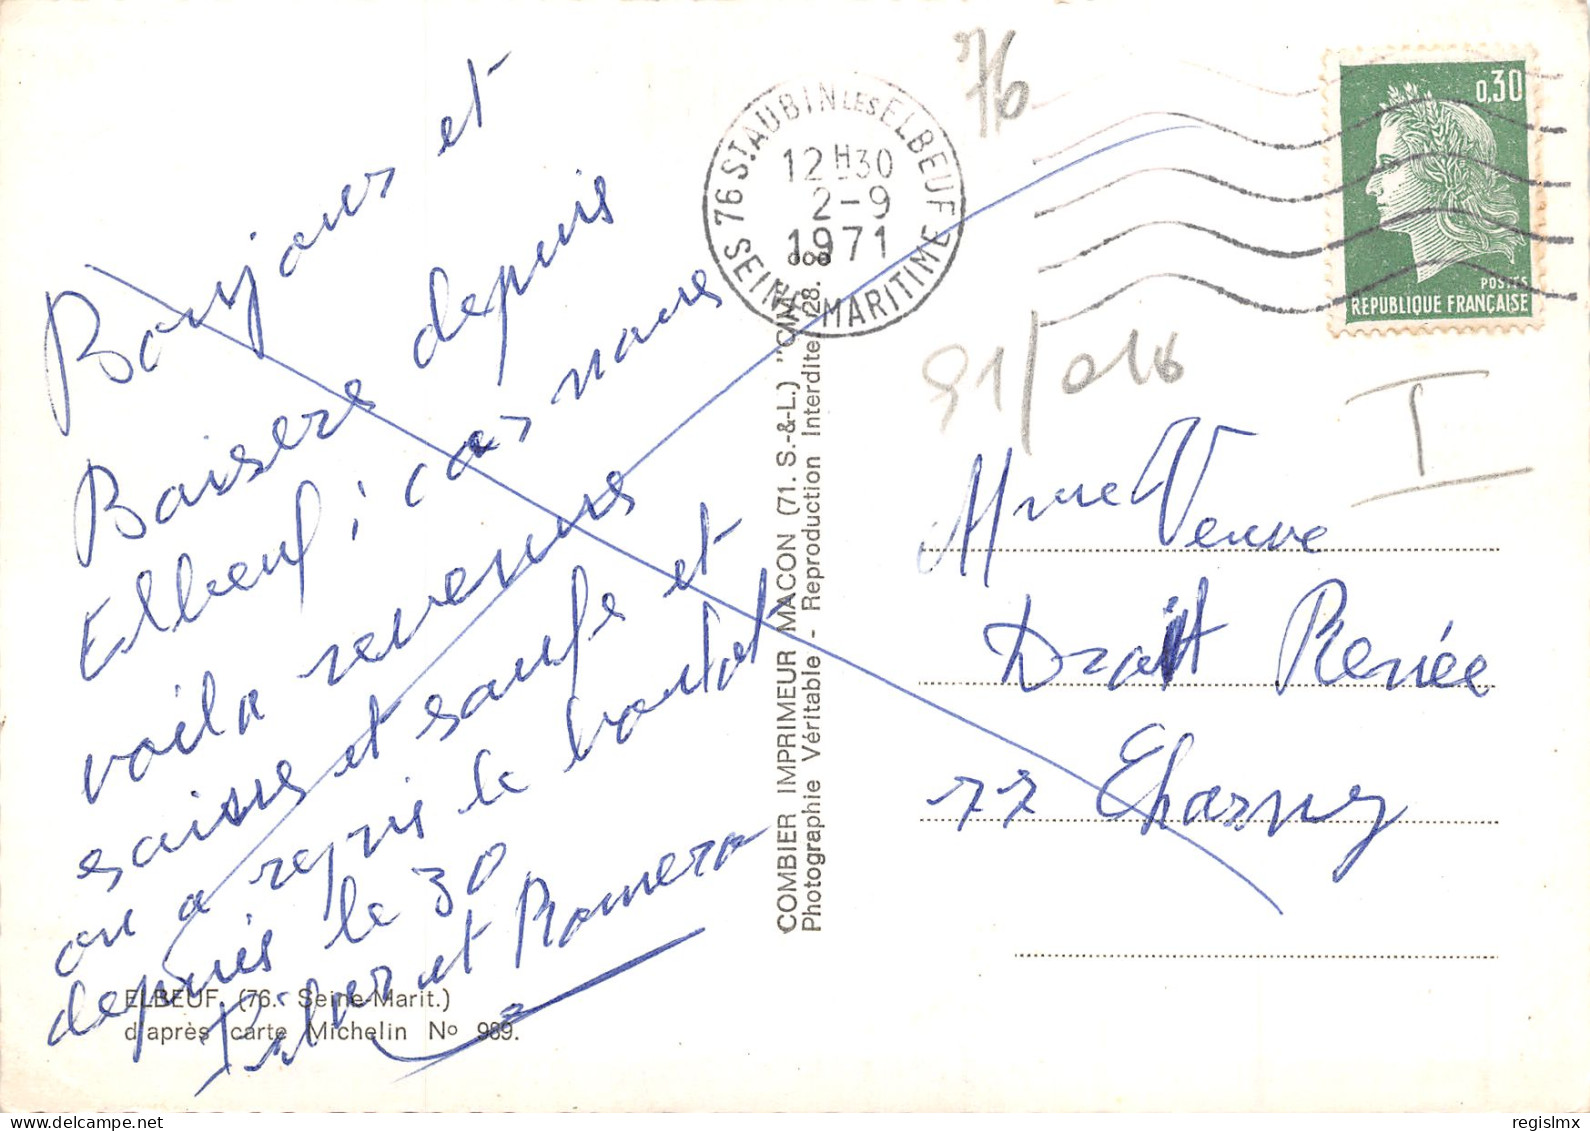 Bonjour et
Baisers depuis
Elbeuf, car nous
voila revenus
saine et saufs et
on a repris le boulot
depuis le 30
et Romero
ELBEUF. (76. Seine-Marit.)
d'après carte Michelin No 989.
COMBIER IMPRIMEUR MACON (71. S.-&-L.) "CIM"
Photographie Véritable - Reproduction Interdite
28.
76 ST AUBIN LES ELBEUF
12H30
2-9
1971
SEINE MARITIME
76
0,30
POSTES
REPUBLIQUE FRANÇAISE
91/016
I
Mme Veuve
Drait Renée
77 Charny
regislmx